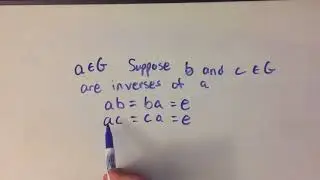 a∈G Suppose b and c ∈ G
are inverses of a
ab = ba = e
ac = ca = e